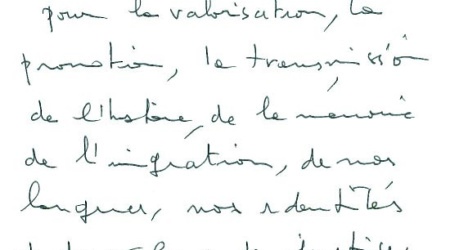 pour la valorisation, la
promotion, la transmission
de l'histoire, de la mémoire
de l'imigration, de nos
langues, nos identités